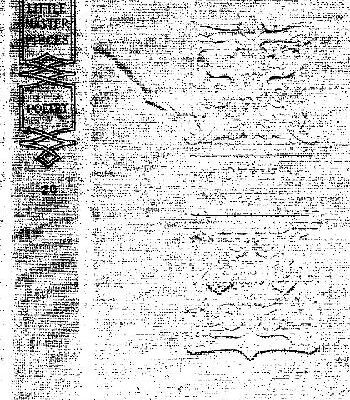 LITTLE
MASTER
PIECES
POETRY
20